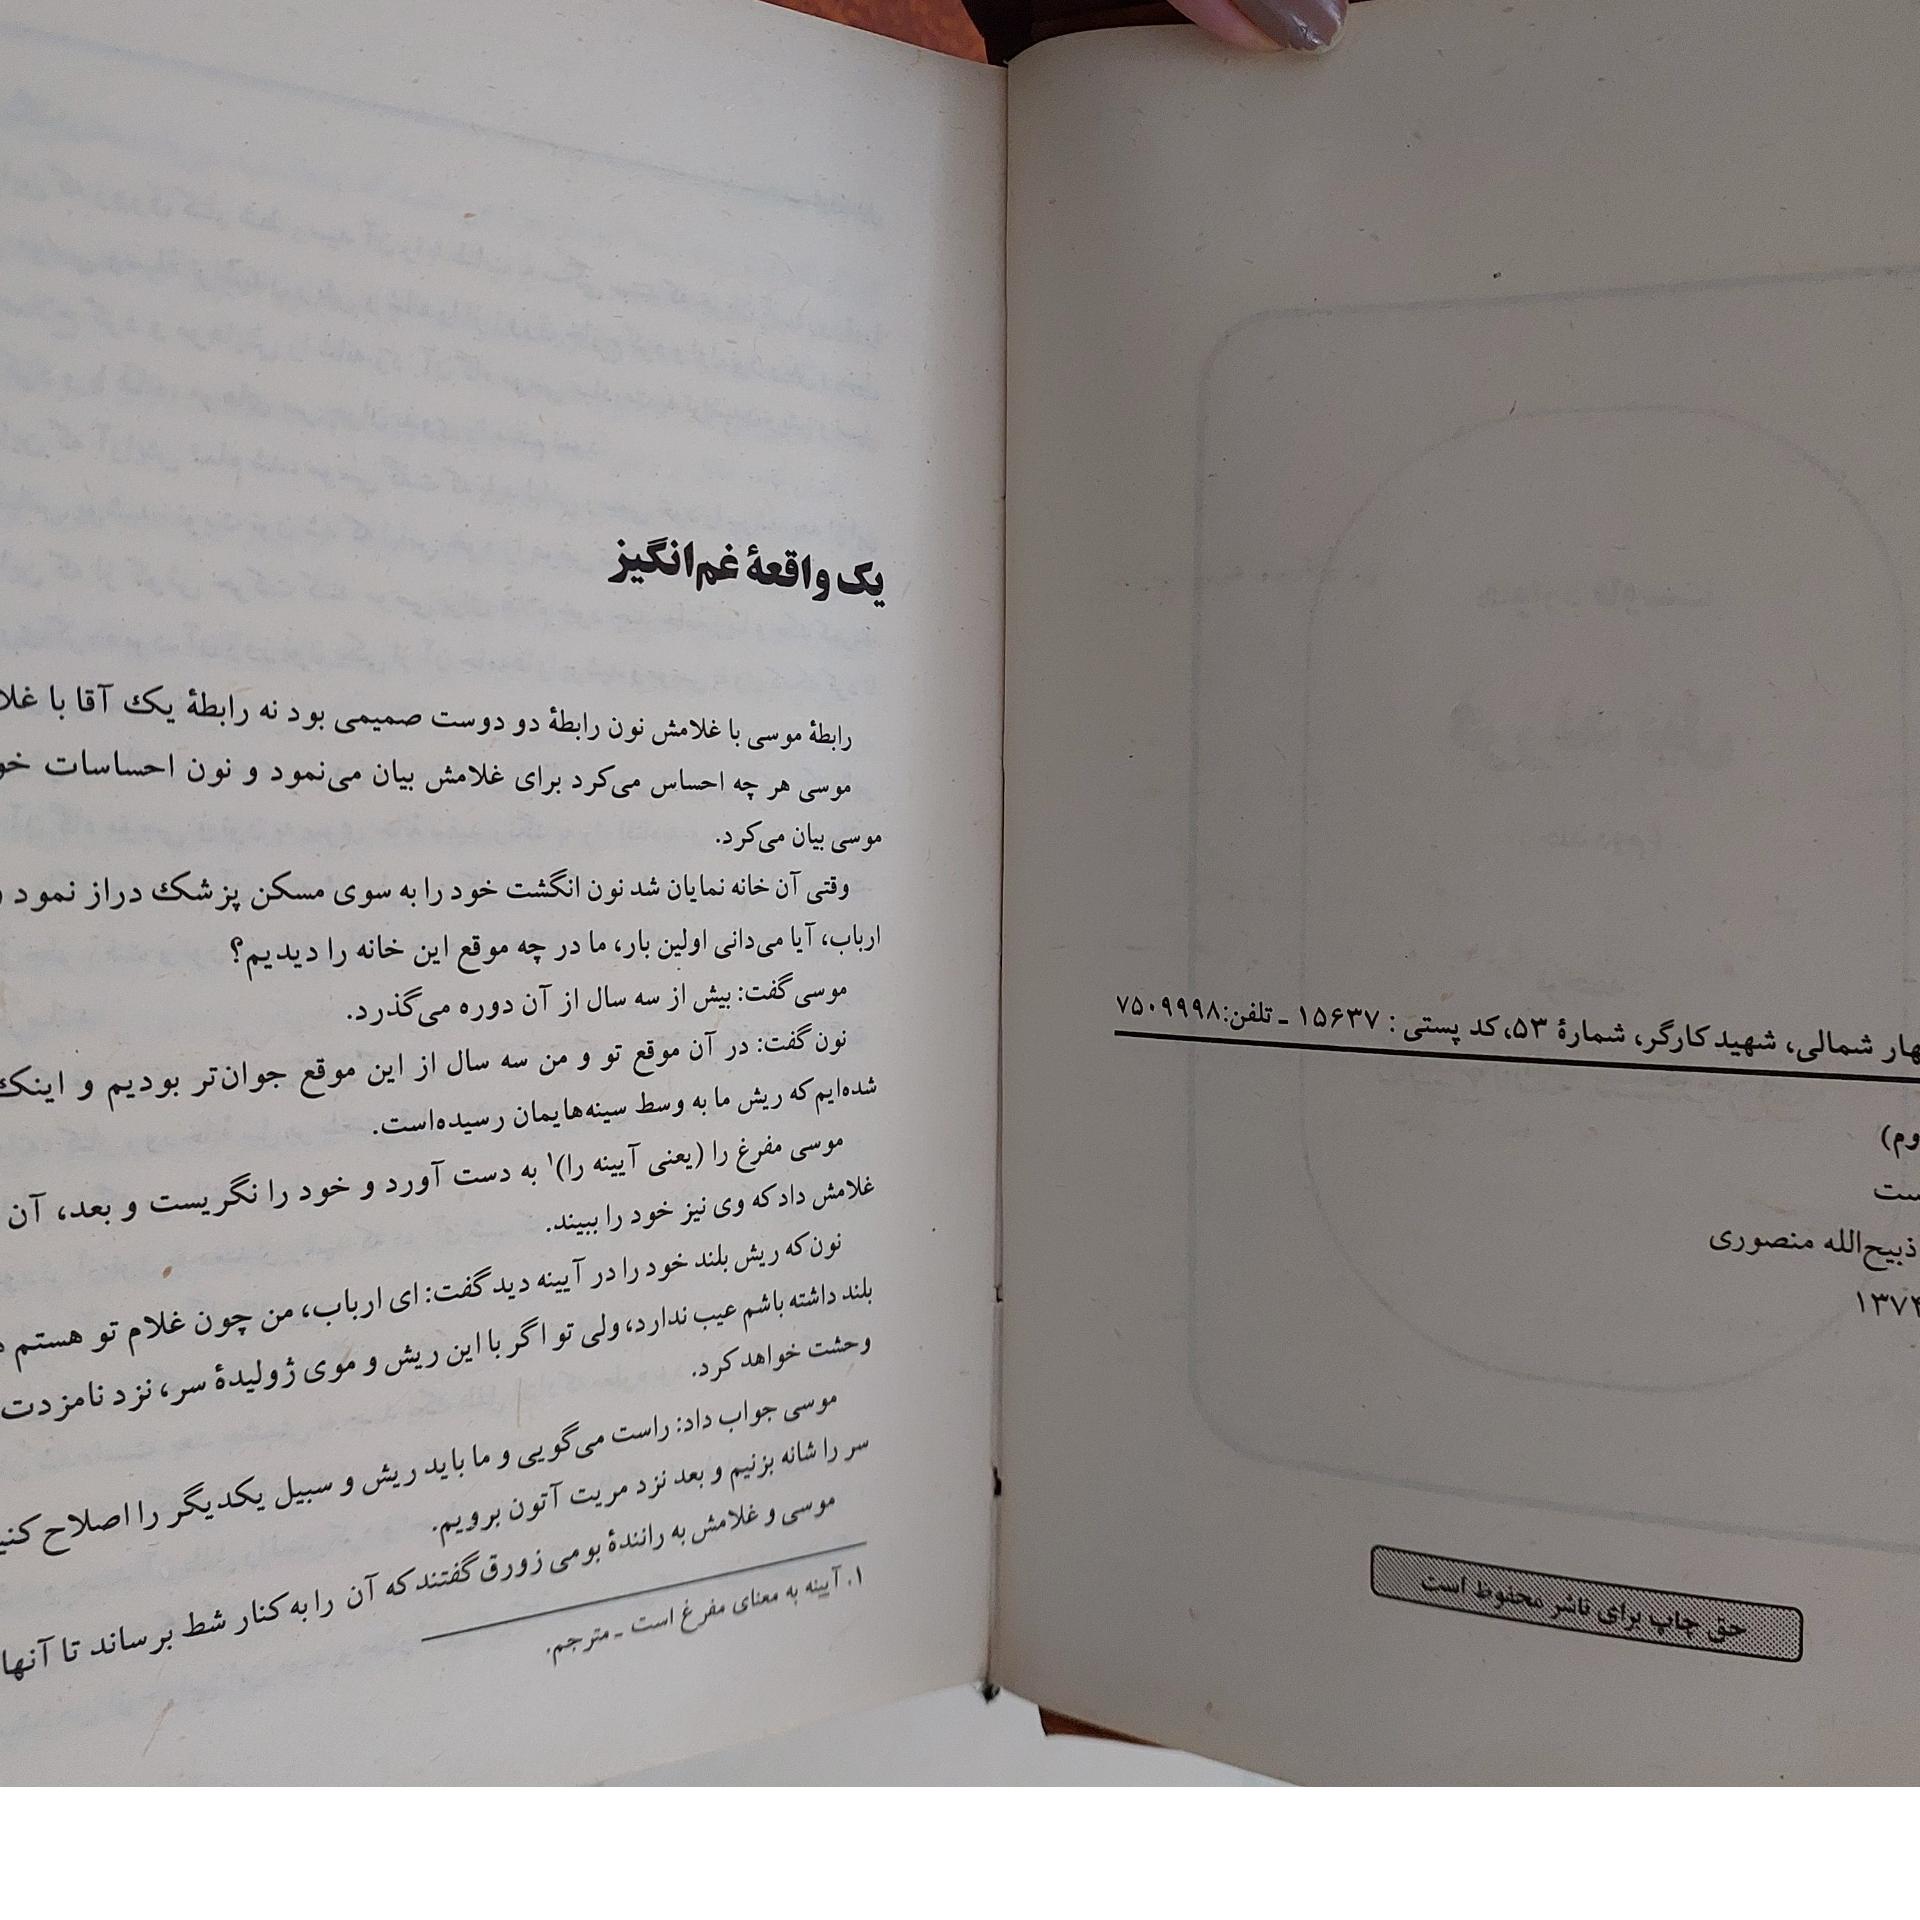 شمالی، شهید کارگر، شمارهٔ ۵۳، کد پستی : ۱۵۶۳۷ ـ تلفن: ۷۵۰۹۹۹۸
ذبیح‌الله منصوری
حق چاپ برای ناشر محفوظ است
یک واقعهٔ غم‌انگیز
رابطهٔ موسی با غلامش نون رابطهٔ دو دوست صمیمی بود نه رابطهٔ یک آقا با
موسی هر چه احساس می‌کرد برای غلامش بیان می‌نمود و نون احساسات
موسی بیان می‌کرد.
وقتی آن خانه نمایان شد نون انگشت خود را به سوی مسکن پزشک دراز نمود
ارباب، آیا می‌دانی اولین بار، ما در چه موقع این خانه را دیدیم؟
موسی گفت: بیش از سه سال از آن دوره می‌گذرد.
نون گفت: در آن موقع تو و من سه سال از این موقع جوان‌تر بودیم و اینک
شده‌ایم که ریش ما به وسط سینه‌هایمان رسیده‌است.
موسی مفرغ را (یعنی آیینه را)۱ به دست آورد و خود را نگریست و بعد، آن
غلامش داد که وی نیز خود را ببیند.
نون که ریش بلند خود را در آیینه دید گفت: ای ارباب، من چون غلام تو هستم
بلند داشته باشم عیب ندارد، ولی تو اگر با این ریش و موی ژولیدهٔ سر، نزد نامزدت
وحشت خواهد کرد.
موسی جواب داد: راست می‌گویی و ما باید ریش و سبیل یکدیگر را اصلاح
سر را شانه بزنیم و بعد نزد مریت آتون برویم.
موسی و غلامش به رانندهٔ بومی زورق گفتند که آن را به کنار شط برساند تا آنها
۱. آیینه به معنای مفرغ است ـ مترجم.